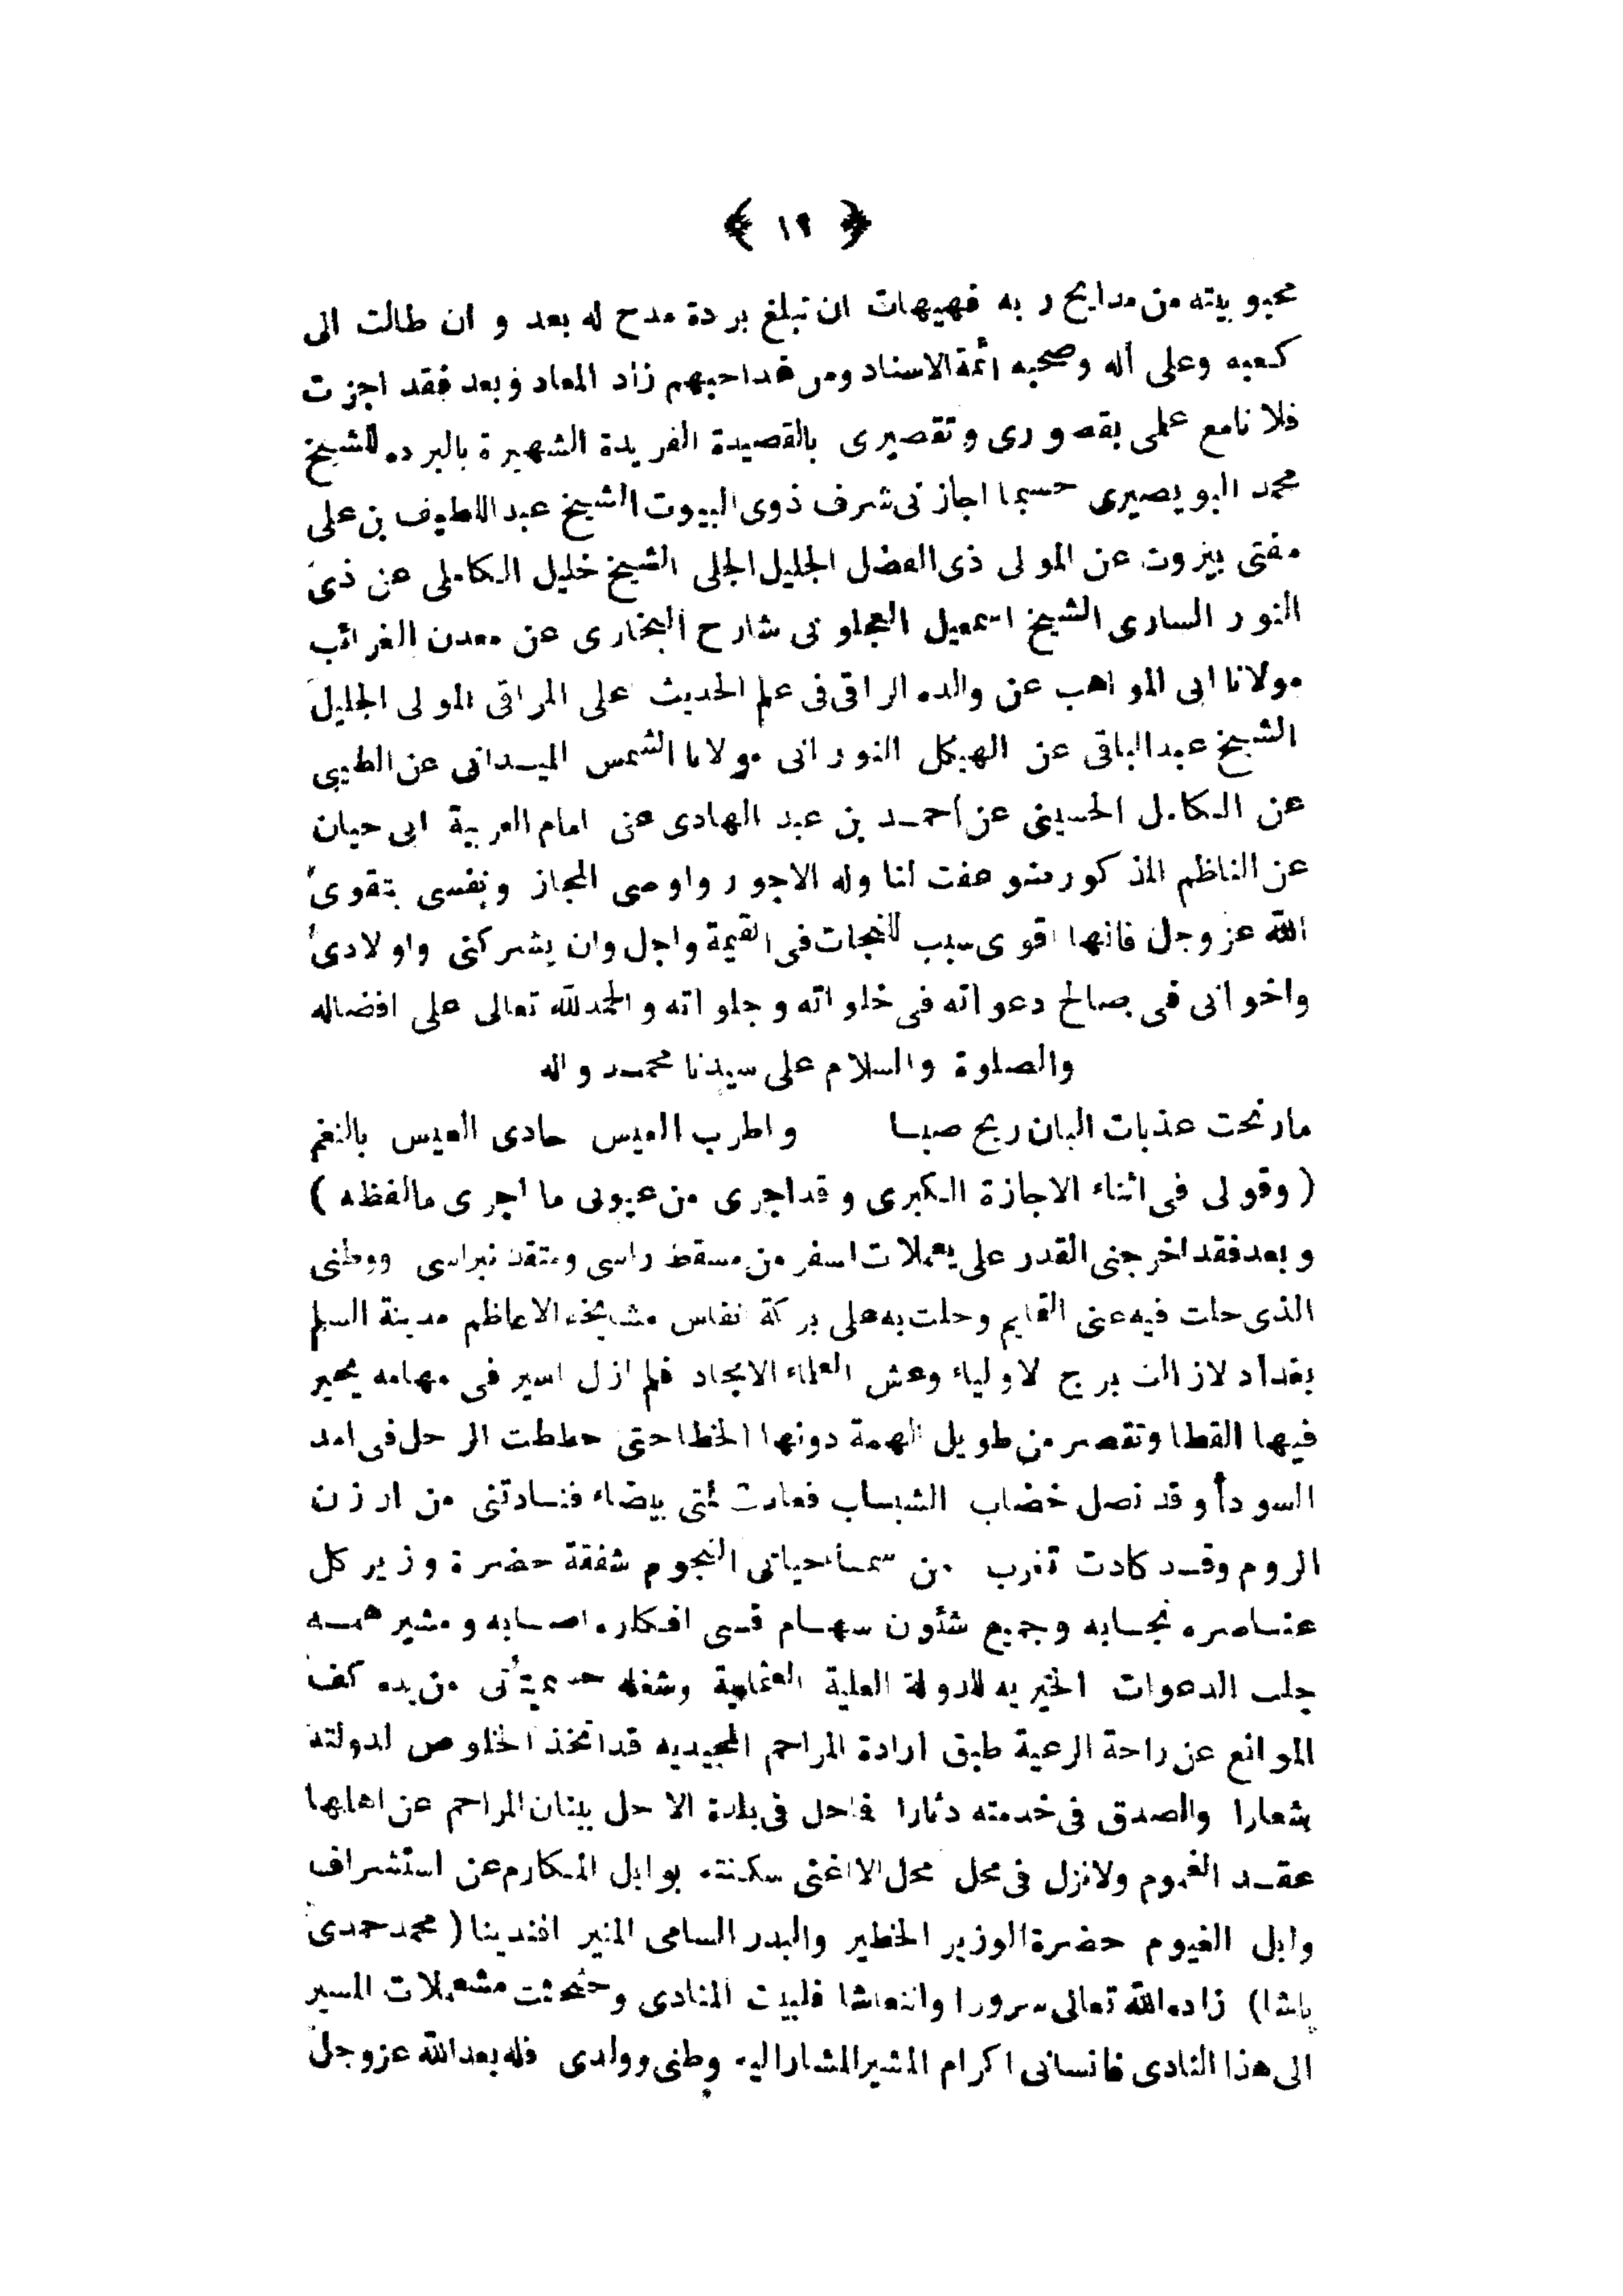 ﴿ ١٢ ﴾
محبوبيته من مدايح ربه فهيهات ان تبلغ بردة مدح له بعد وان طالت الى
كعبه وعلى آله وصحبه ائمة الاسناد ومن غدا حبهم زاد المعاد وبعد فقد اجزت
فلانا مع علمى بقصورى وتقصيرى بالقصيدة الفريدة الشهيرة بالبرده للشيخ
محمد البويصيرى حسبما اجازنى شرف ذوى البيوت الشيخ عبداللطيف بن على
مفتى بيروت عن المولى ذى الفضل الجليل الجلى الشيخ خليل الكاملى عن ذى
النور السارى الشيخ اسمعيل العجلونى شارح البخارى عن معدن الغرائب
مولانا ابى المواهب عن والده الراقى فى علم الحديث على المراقى المولى الجليل
الشيخ عبدالباقى عن الهيكل النورانى مولانا الشمس الميدانى عن الطيبى
عن الكامل الحسينى عن احمد بن عبد الهادى عن امام العربية ابى حيان
عن الناظم المذكور ضوعفت لنا وله الاجور واوصى المجاز ونفسى بتقوى
الله عز وجل فانها اقوى سبب للنجات فى القيمة واجل وان يشركنى واولادى
واخوانى فى صالح دعواته فى خلواته وجلواته والحمدلله تعالى على افضاله
والصلوة والسلام على سيدنا محمد واله
مارنحت عذبات البان ريح صبا واطرب العيس حادى العيس بالنغم
(وقولى فى اثناء الاجازة الكبرى وقد اجرى من عيونى ما اجرى مالفظه)
وبعد فقد اخرجنى القدر على يعملات اسفر من مسقط راسى ومتقد نبراسى ووطنى
الذى حلت فيه عنى التمايم وحلت به على بركة انفاس مشايخه الاعاظم مدينة السلم
بغداد لازالت برج لاولياء وعش العلماء الامجاد فلم ازل اسير فى مهامه يحير
فيها القطا وتقصر من طويل الهمة دونها الخطا حتى حططت الرحل فى امد
السودأ وقد نصل خضاب الشباب فعادت لمتى بيضاء فنادتنى من ارزن
الروم وقد كادت تغرب من سمأ حياتى النجوم شفقة حضرة وزير كل
عناصره نجابه وجميع شئون سهام قسى افكاره اصابه ومشير همه
جلب الدعوات الخيريه للدولة العلية العثمانية وشغله حسبما يتأتى من يده كف
الموانع عن راحة الرعية طبق ارادة المراحم المجيديه قد اتخذ الخلوص لدولته
شعارا والصدق فى خدمته دثارا فما حل فى بلدة الا حل ببنان المراحم عن اهلها
عقد الغموم ولا نزل فى محل محل الا اغنى سكنته بوابل المكارم عن استشراف
وابل الغيوم حضرة الوزير الخطير والبدر السامى المنير افندينا (محمد حمدى
باشا) زاده الله تعالى سرورا وانتعاشا فلبيت المنادى وحثحثت مشعملات المسير
الى هذا النادى فانسانى اكرام المشير المشار اليه وطنى وولدى فله بعد الله عز وجل